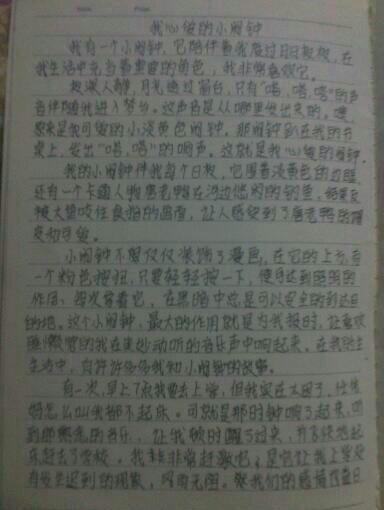 我心爱的小闹钟
我有一个小闹钟,它陪伴着我度过日日夜夜,在
我生活中充当着重要的角色,我非常喜欢它。
夜深人静,月光透过窗台,只有“嗒、嗒、嗒”的声
音伴随我进入梦乡。这声音是从哪里发出来的。噢
原来是我可爱的小淡黄色闹钟,那闹钟趴在我的书
桌上,发出“嗒、嗒”的响声。这就是我心爱的闹钟。
我的小闹钟伴我每个日夜,它围着淡黄色的边框
还有一个卡通人物唐老鸭在河边悠闲的钓鱼,结果反
被大螃 让人感受到了唐老鸭的
小闹钟不仅仅仅装饰了漫画,在它的上方有
一个粉色按钮,只要轻轻按一下,便可达到照明的
作用,每次拿着它,在黑暗中总是可以安全的到达目
的地。这个小闹钟,最大的作用就是为我报时,让喜欢
睡懒觉的我在美妙动听的音乐声中响起来。在我的生
生活中,有许许多多我和小闹钟的故事。
有一次,早上7点我要去上学,但我实在太困了,任凭
妈怎么叫我都不起床。可就是那时钟响了起来,听
到那熟悉的音乐,让我顿时醒了过来,并飞快地起
床赶去了学校。我 非常感激吧,是它让我上学没
有发生迟到的现象,